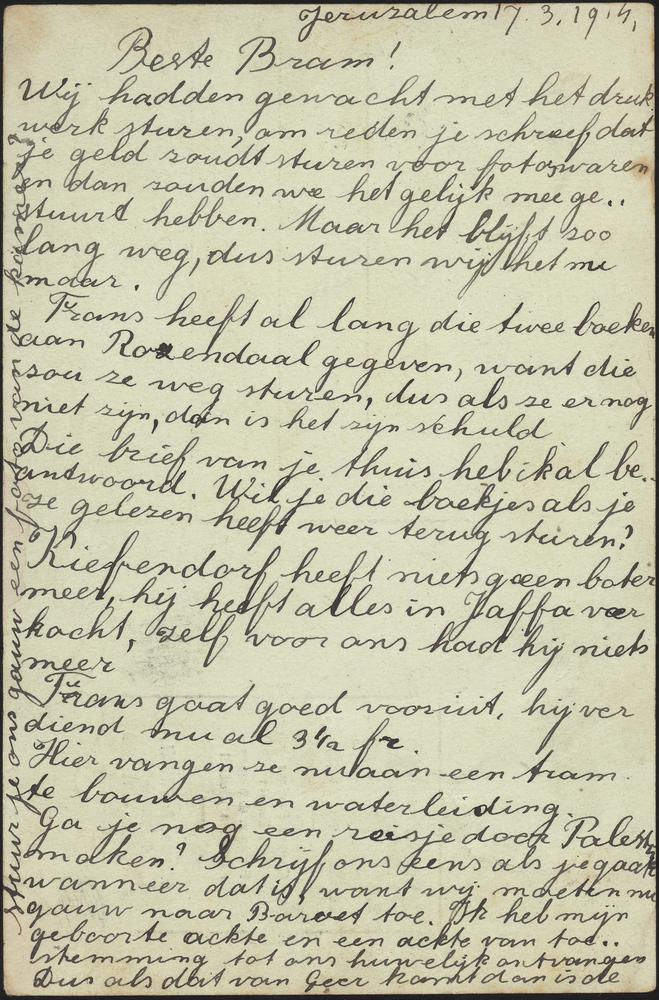 Jeruzalem 17.3.1914,
Beste Bram!
Wij hadden gewacht met het druk
werk sturen, om reden je schreef dat
je geld zoudt sturen voor fotowaren
en dan zouden we het gelijk mee ge..
stuurt hebben. Maar het blijft zoo
lang weg, dus sturen wij het nu
maar.
Frans heeft al lang die twee boeken
aan Rozendaal gegeven, want die
zou ze weg sturen, dus als ze er nog
niet zijn, dan is het zijn schuld
Die brief van je thuis heb ik al be..
antwoord. Wil je die boekjes als je
ze gelezen heeft weer terug sturen?
Kiefendorf heeft niets geen boter
meer, hij heeft alles in Jaffa ver
kocht, zelf voor ons had hij niets
meer
Frans gaat goed vooruit, hij ver
diend nu al 3 1/2 fr.
Hier vangen ze nu aan een tram
te bouwen en waterleiding.
Ga je nog een reisje door Palestina
maken? Schrijf ons eens als je gaat
wanneer dat is, want wij moeten nu
gauw naar toe. Ik heb mijn
geboorte ackte en een ackte van toe..
stemming tot ons huwelijk ontvangen
Dus als dat van Geer komt dan is de
Stuur je ons gauw een foto van de